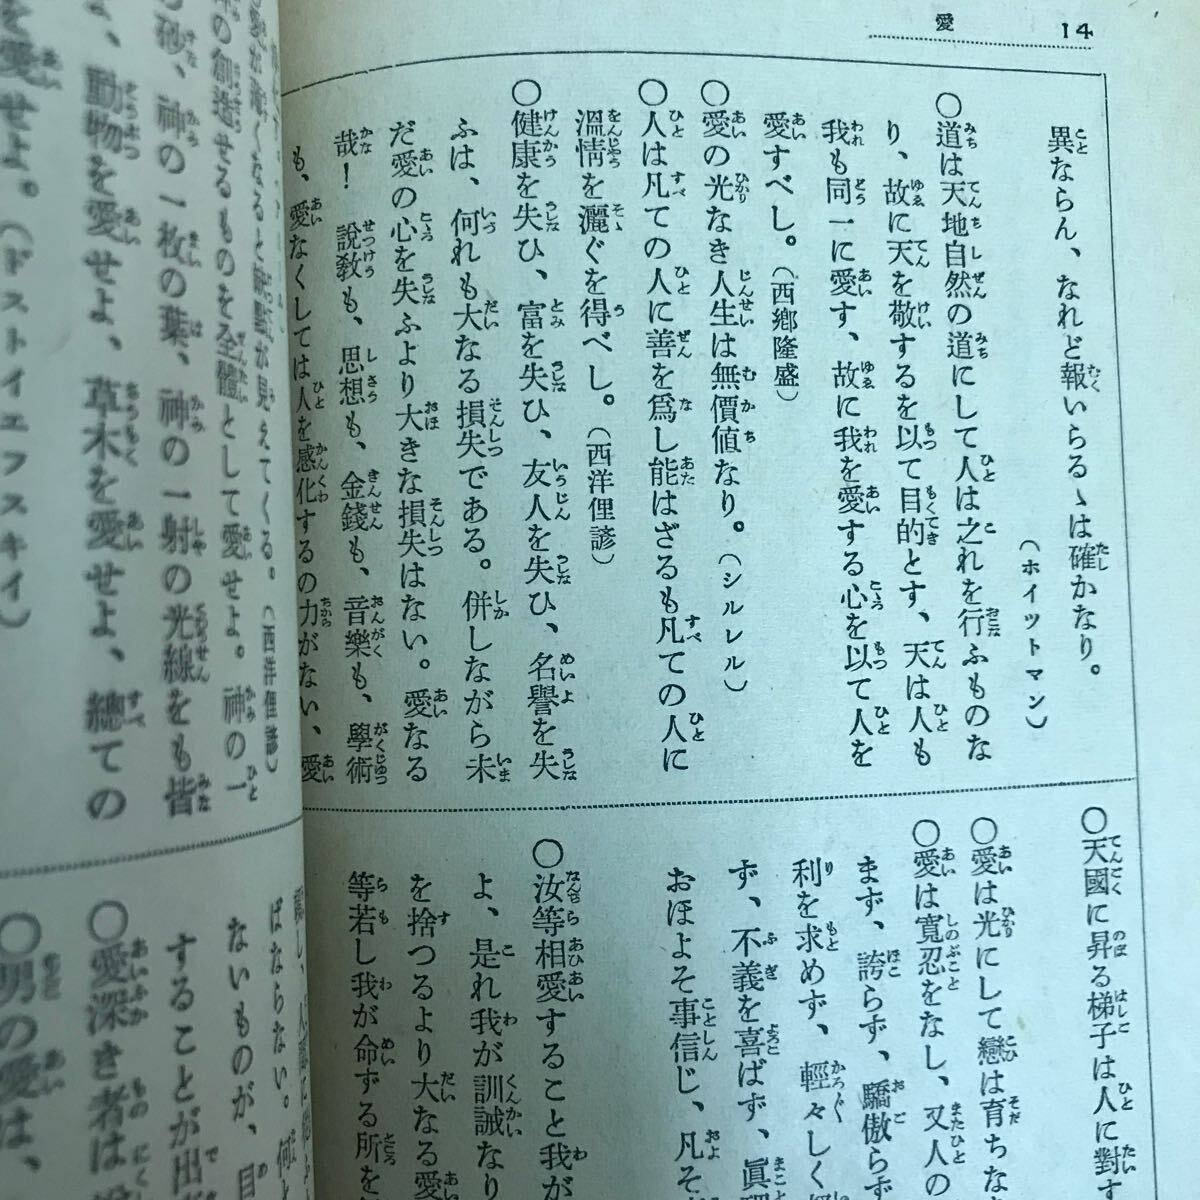 14
愛
異ならん、なれど報いらるゝは確かなり。
（ホイツトマン）
○道は天地自然の道にして人は之れを行ふものな
り、故に天を敬するを以て目的とす、天は人も
我も同一に愛す、故に我を愛する心を以て人を
愛すべし。（西鄕隆盛）
○愛の光なき人生は無價値なり。（シルレル）
○人は凡ての人に善を爲し能はざるも凡ての人に
溫情を灑ぐを得べし。（西洋俚諺）
○健康を失ひ、富を失ひ、友人を失ひ、名譽を失
ふは、何れも大なる損失である。併しながら未
だ愛の心を失ふより大きな損失はない。愛なる
哉！　說敎も、思想も、金錢も、音樂も、學術
も、愛なくしては人を感化するの力がない、愛
○天國に昇る梯子は人に對す
○愛は光にして戀は育ちな
○愛は寬忍をなし、又人の
まず、誇らず、驕傲らず
利を求めず、輕々しく
ず、不義を喜ばず、眞理
おほよそ事信じ、凡そ
○汝等相愛すること我が
よ、是れ我が訓誡なり
を捨つるより大なる愛
等若し我が命ずる所を
が見えてくる。（西洋俚諺）
の創造せるものを全體として愛せよ。神の一
砂、神の一枚の葉、神の一射の光線をも皆
、動物を愛せよ、草木を愛せよ、總ての
を愛せよ。（ドストイエフスキイ）
ばならない。何と
ないものが、目
することが出
○愛深き者は
○男の愛は、